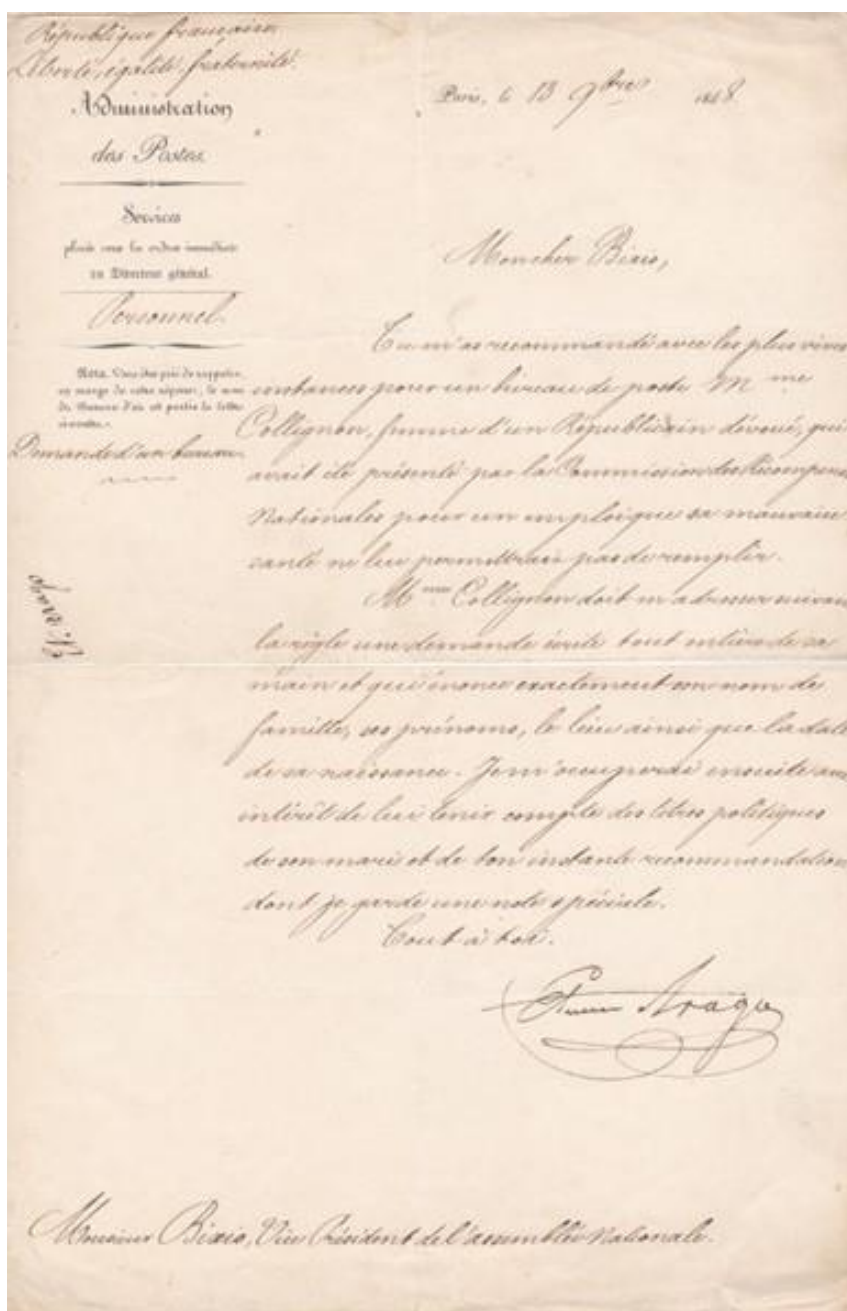 République française
Liberté, égalité, fraternité.
Administration
des Postes.
Paris, le 13 9bre 1848.
Services
placés sous les ordres immédiats
du Directeur général.
Personnel.
Nota. Vous êtes prié de rappeler,
en marge de votre réponse, le nom
du Bureau d'où est partie la lettre
Demande d'un bureau
Et. arago
Mon cher Bixio,
Tu m'as recommandé avec les plus vives
instances pour un bureau de poste Mme
Collignon, femme d'un Républicain dévoué, qui
avait été présenté par la Commission des Récompenses
Nationales pour un emploi que sa mauvaise
santé ne lui permettrait pas de remplir.
Mme Collignon doit m'adresser suivant
la règle une demande écrite tout entière de sa
main et qui énonce exactement son nom de
famille, ses prénoms, le lieu ainsi que la date
de sa naissance. Je m'occuperai ensuite avec
intérêt de lui tenir compte des titres politiques
de son mari et de ton instante recommandation
dont je garde une note spéciale.
Tout à toi.
Arago
Monsieur Bixio, Vice Président de l'assemblée Nationale.